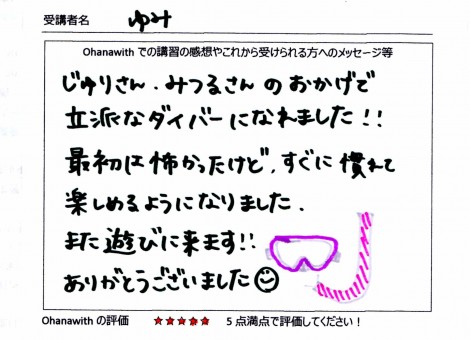 受講者名 ゆみ
Ohanawith での講習の感想やこれから受けられる方へのメッセージ等
じゅりさん、みつるさんのおかげで
立派なダイバーになれました!!
最初は怖かったけど、すぐに慣れて
楽しめるようになりました。
また遊びに来ます!!
ありがとうございました☺
Ohanawith の評価 ★★★★★ 5点満点で評価してください!